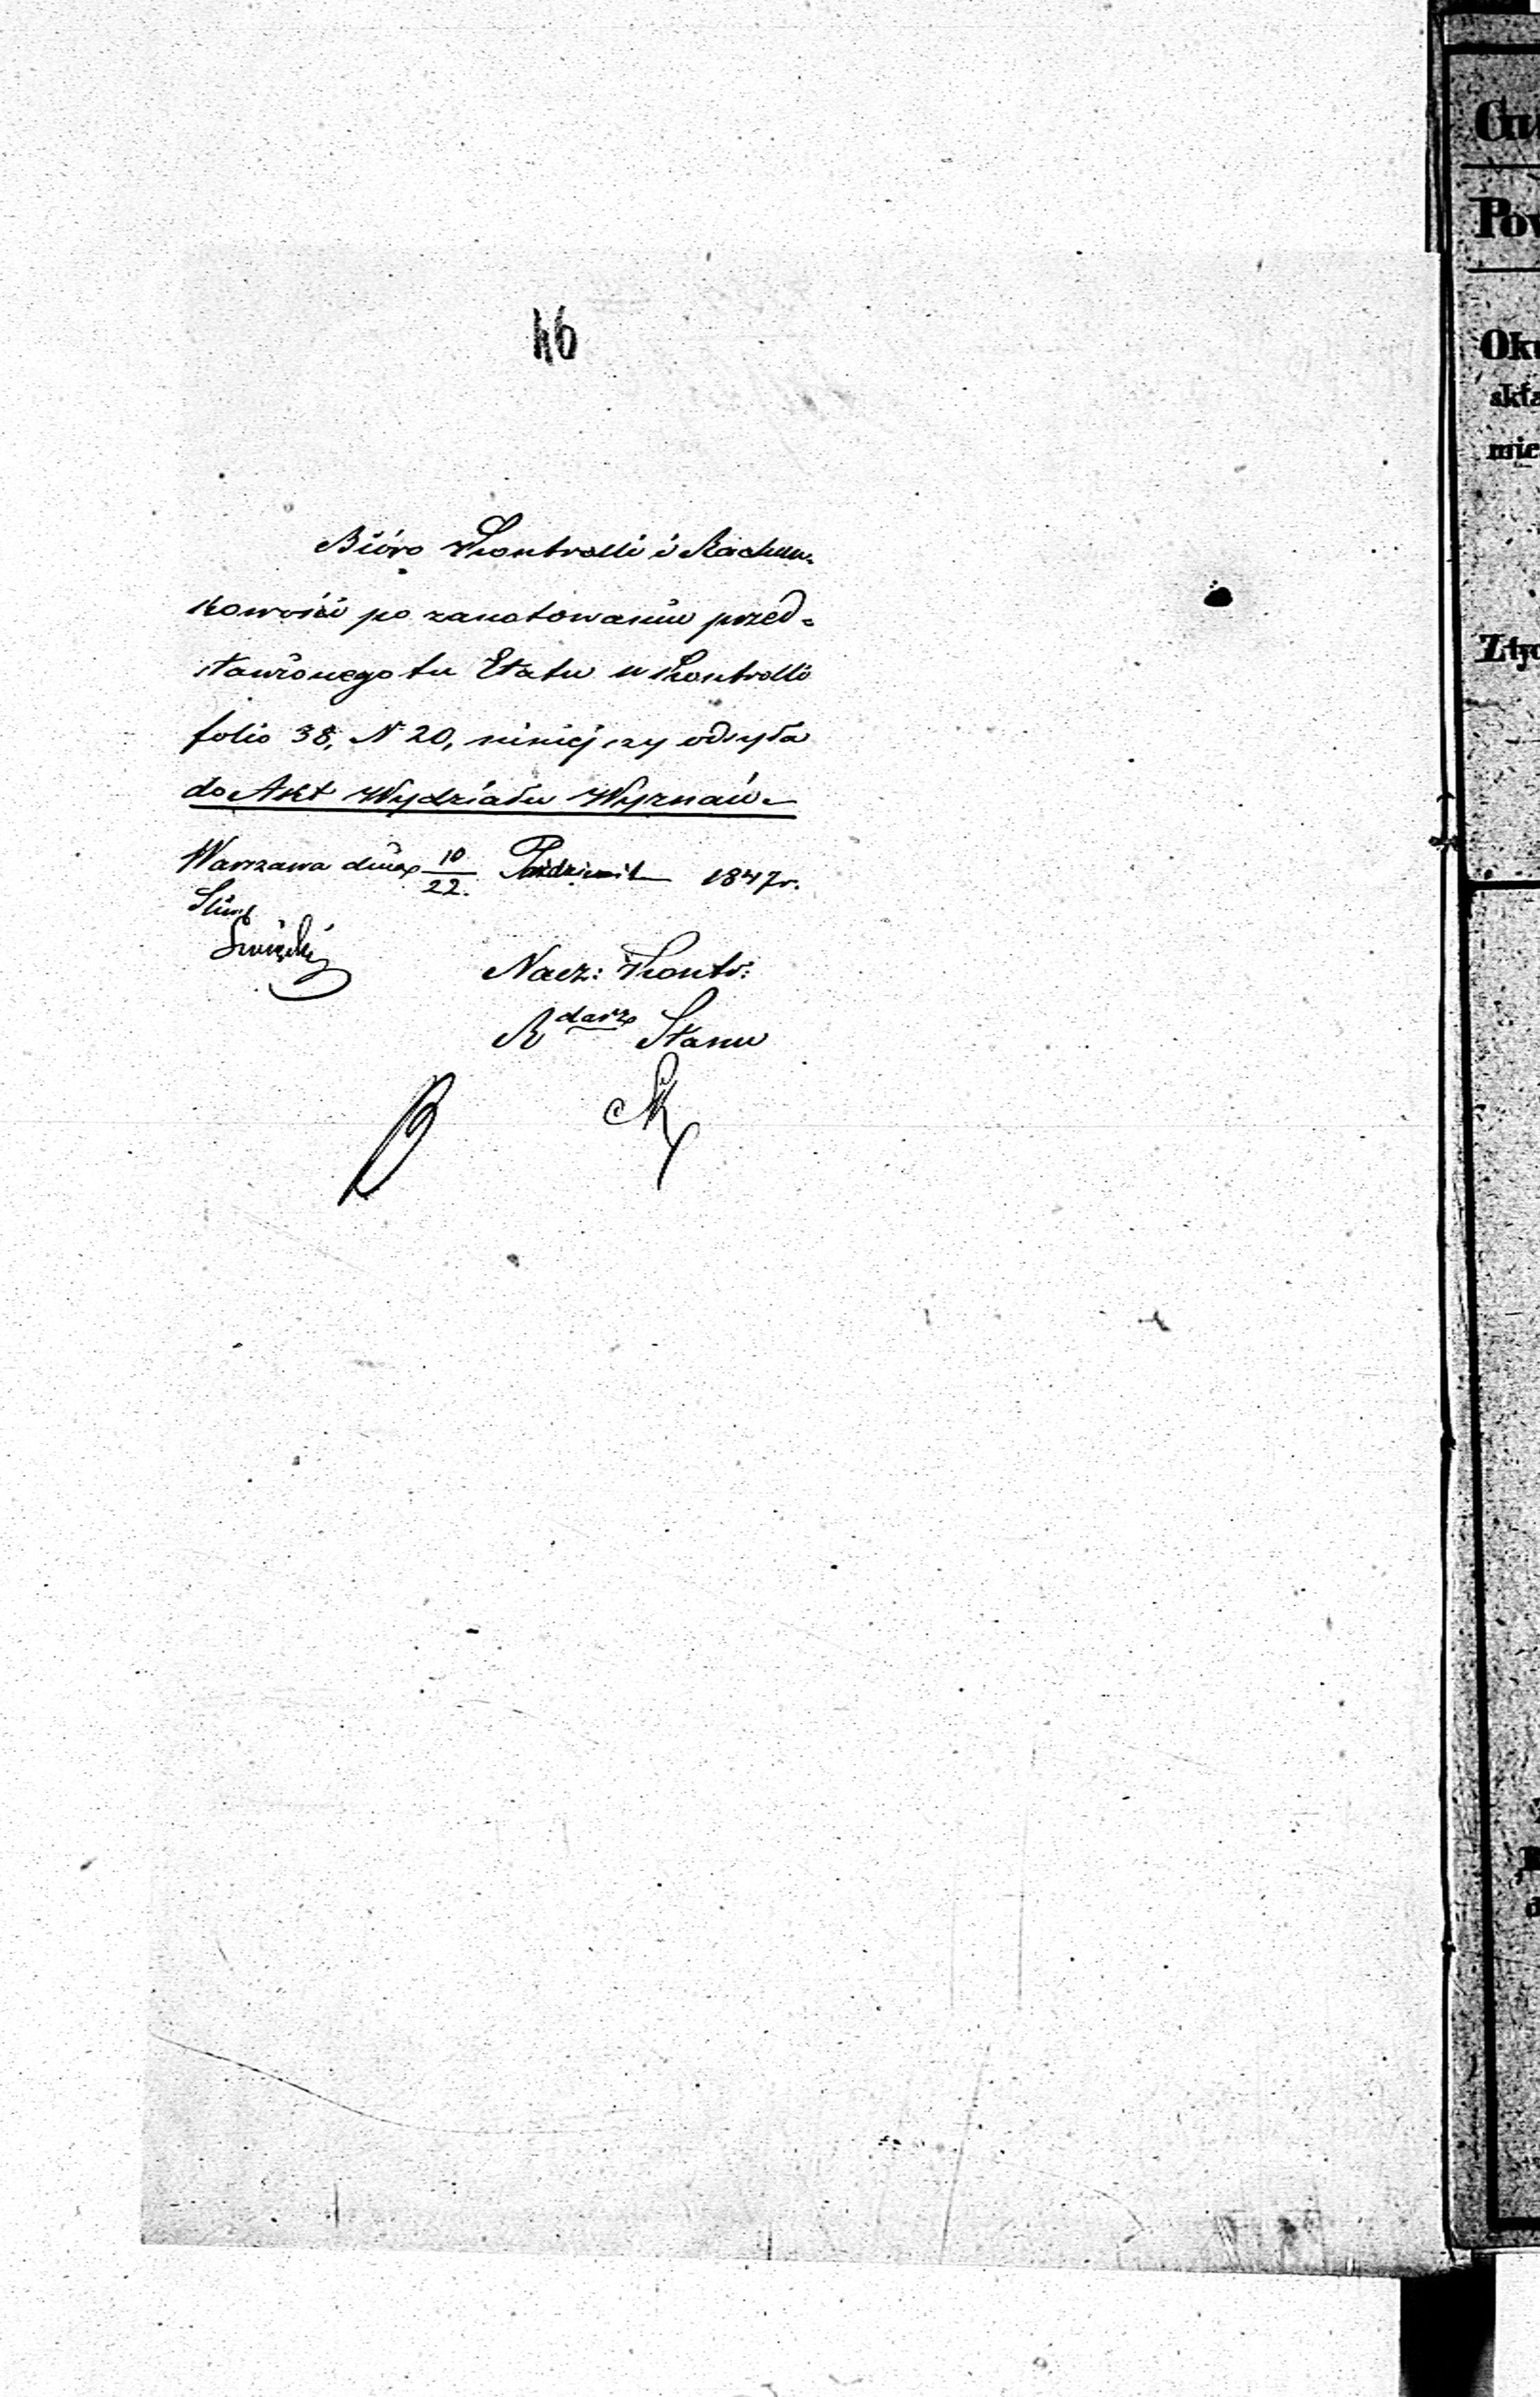 46
Bióro Kontrolli i Rachun-
kowości po zanotowaniu przed-
stawionego tu Etatu w Kontrolli
folio 38, N 20, niniejszy odsyła
do Akt Wydziału Wyznań.
Warszawa dnia 10/22. Październik 1847 r.
Nacz: Kontr:
R darz Stanu
Gu
Pow
Okr
skła
mie
Zty